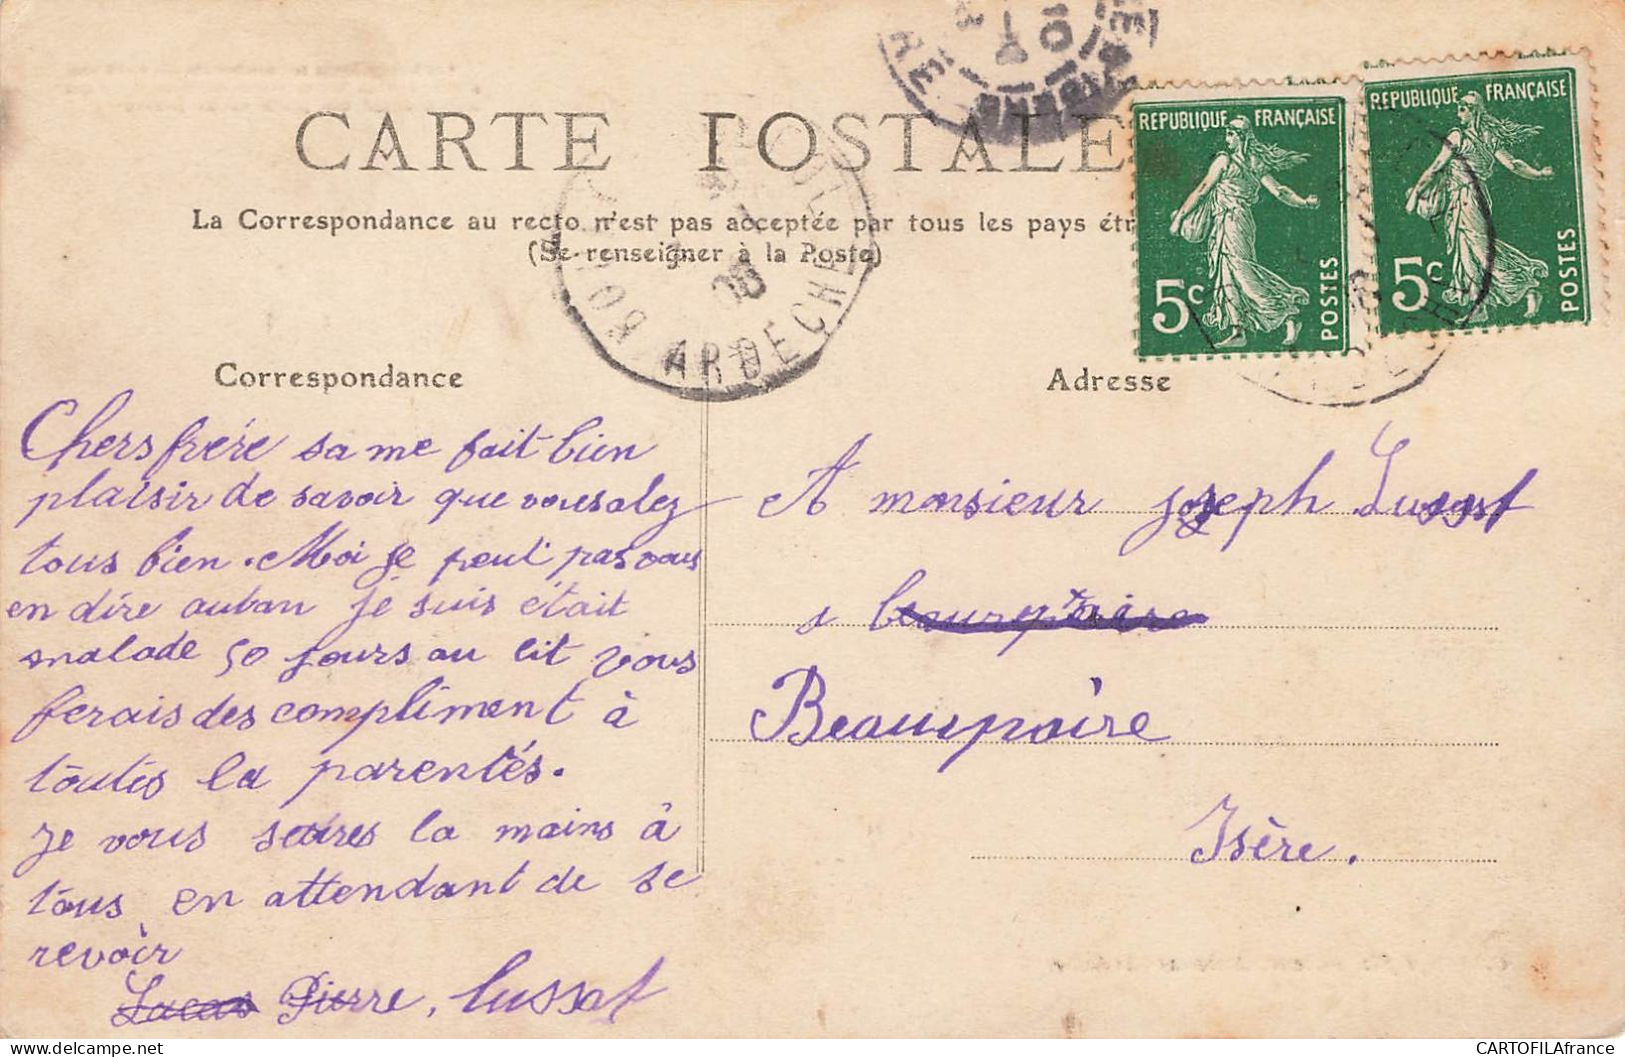 CARTE POSTALE
La Correspondance au recto n'est pas acceptée par tous les pays étr
(Se renseigner à la Poste)
REPUBLIQUE FRANÇAISE
5c POSTES
REPUBLIQUE FRANÇAISE
5c POSTES
ARDECHE
08
Correspondance
Chers frère sa me fait bien
plaisir de savoir que vous alez
tous bien. Moi je peut pas vous
en dire autan je suis était
malade 50 jours au lit vous
ferais des compliment à
toutes la parentés.
Je vous seires la mains à
tous en attendant de se
revoir
Lucas Pierre, Lussat
Adresse
A monsieur joseph Lussat
a beaurpaire
Beaurpaire
Isère.
CARTOFILAfrance